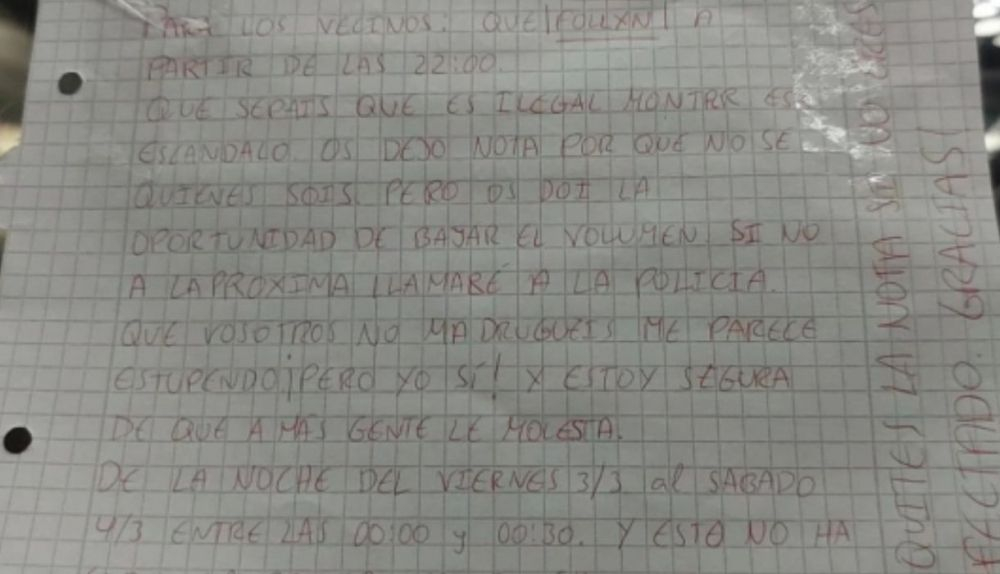 PARA LOS VECINOS: QUE FOLLXN A
PARTIR DE LAS 22:00.
QUE SEPAIS QUE ES ILEGAL MONTAR ES
ESCANDALO. OS DEJO NOTA POR QUE NO SE
QUIENES SOIS PERO OS DOI LA
OPORTUNIDAD DE BAJAR EL VOLUMEN SI NO
A LA PROXIMA LLAMARÉ A LA POLICIA.
QUE VOSOTROS NO MADRUGUEIS ME PARECE
ESTUPENDO ¡PERO YO SÍ! Y ESTOY SEGURA
DE QUE A MAS GENTE LE MOLESTA.
DE LA NOCHE DEL VIERNES 3/3 al SABADO
4/3 ENTRE LAS 00:00 y 00:30. Y ESTO NO HA
QUITES LA NOTA SI NO ERES
FECTADO. GRACIAS!